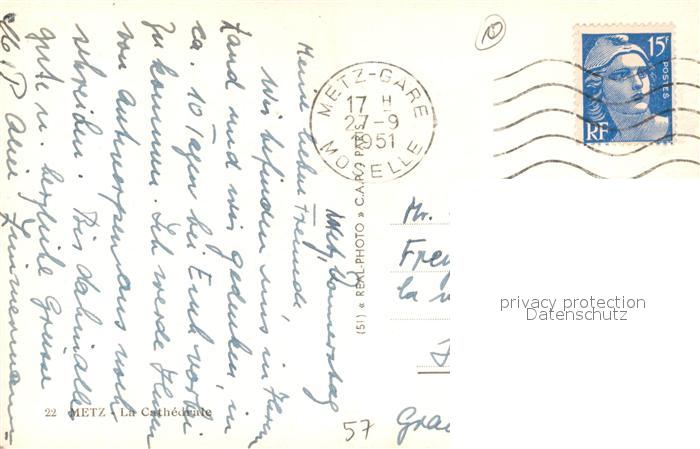 Metz, Donnerstag
Meine lieben Freunde,
Wir befinden uns in
Land und wir gedenken, in
ca. 10 Tagen bei Euch vorbei
zu kommen. Ich werde Ihnen
von Antwerpen aus noch
schreiben. Bis dahin alles
gute u. herzliche Grüsse
Zimmermann
22 METZ - La Cathédrale
(51) « REAL-PHOTO » C.A.P. PARIS
METZ-GARE
17 H
27-9
1951
MOSELLE
15F
POSTES
RF
Mr.
la
57
privacy protection
Datenschutz